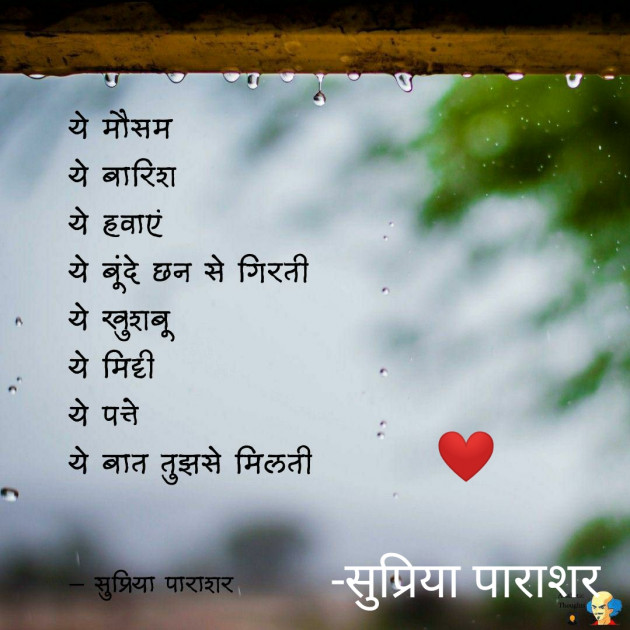 ये मौसम
ये बारिश
ये हवाएं
ये बूंदे छन से गिरती
ये खुशबू
ये मिट्टी
ये पत्ते
ये बात तुझसे मिलती
– सुप्रिया पाराशर
-सुप्रिया पाराशर